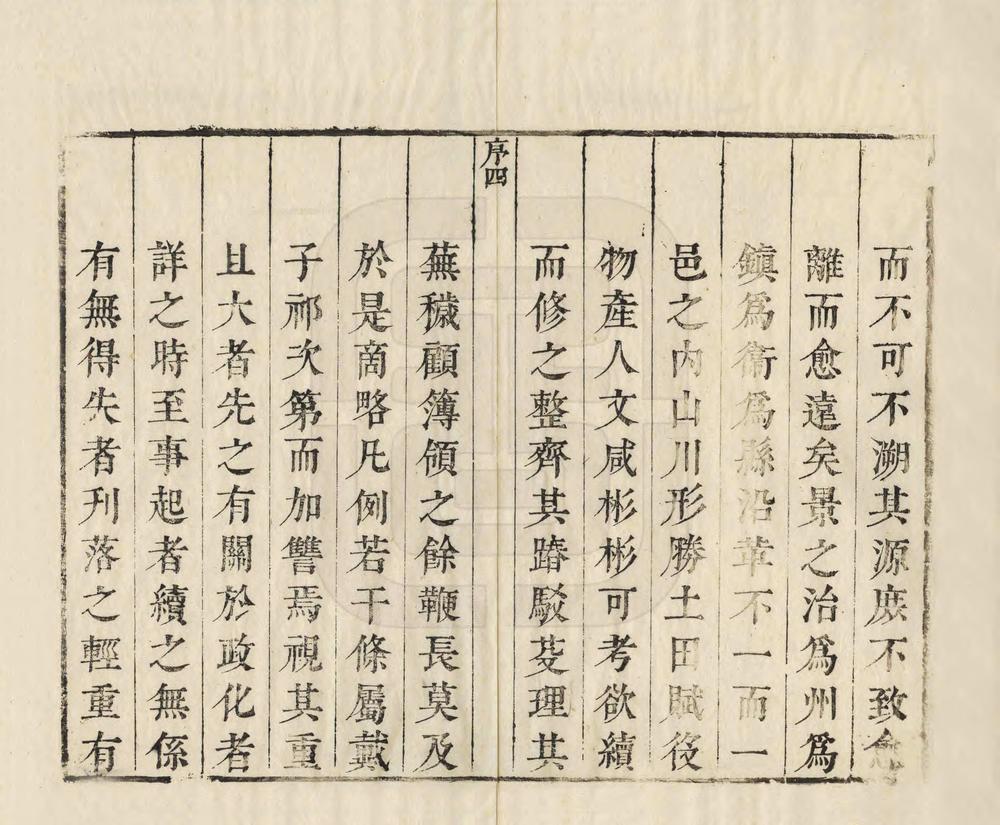 而不可不溯其源庶不致愈
離而愈遠矣景之治爲州爲
鎮爲衞爲縣沿革不一而一
邑之內山川形勝土田賦役
物產人文咸彬彬可考欲續
而修之整齊其踳駁芟理其
序四
蕪穢顧簿領之餘鞭長莫及
於是商略凡例若干條屬戴
子祁次第而加讐焉視其重
且大者先之有關於政化者
詳之時至事起者續之無係
有無得失者刋落之輕重有